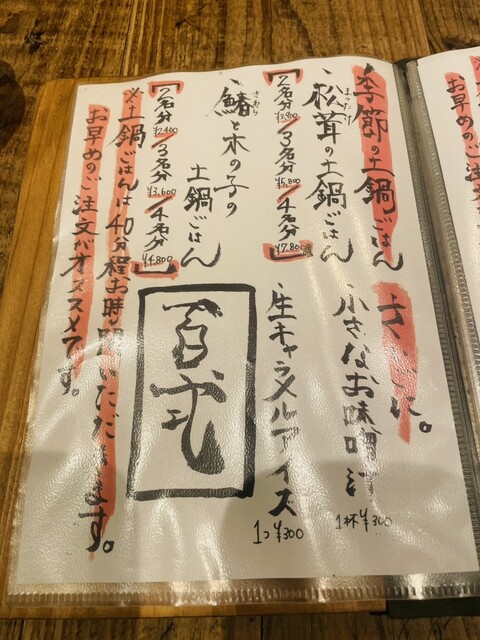 季節の土鍋ごはん
・松茸の土鍋ごはん
まったけ
【2名分/3名分/4名分】
¥3,900
¥5,800
¥7,800
・鰆と木の子の
さわら
土鍋ごはん
【2名分/3名分/4名分】
¥2,400
¥3,600
¥4,800
※土鍋ごはんは40分程お時間いただきます。
お早めのご注文がオススメです。
さいごに。
小さなお味噌汁
1杯¥300
生キャラメルアイス
1つ¥300
お早めのご注文